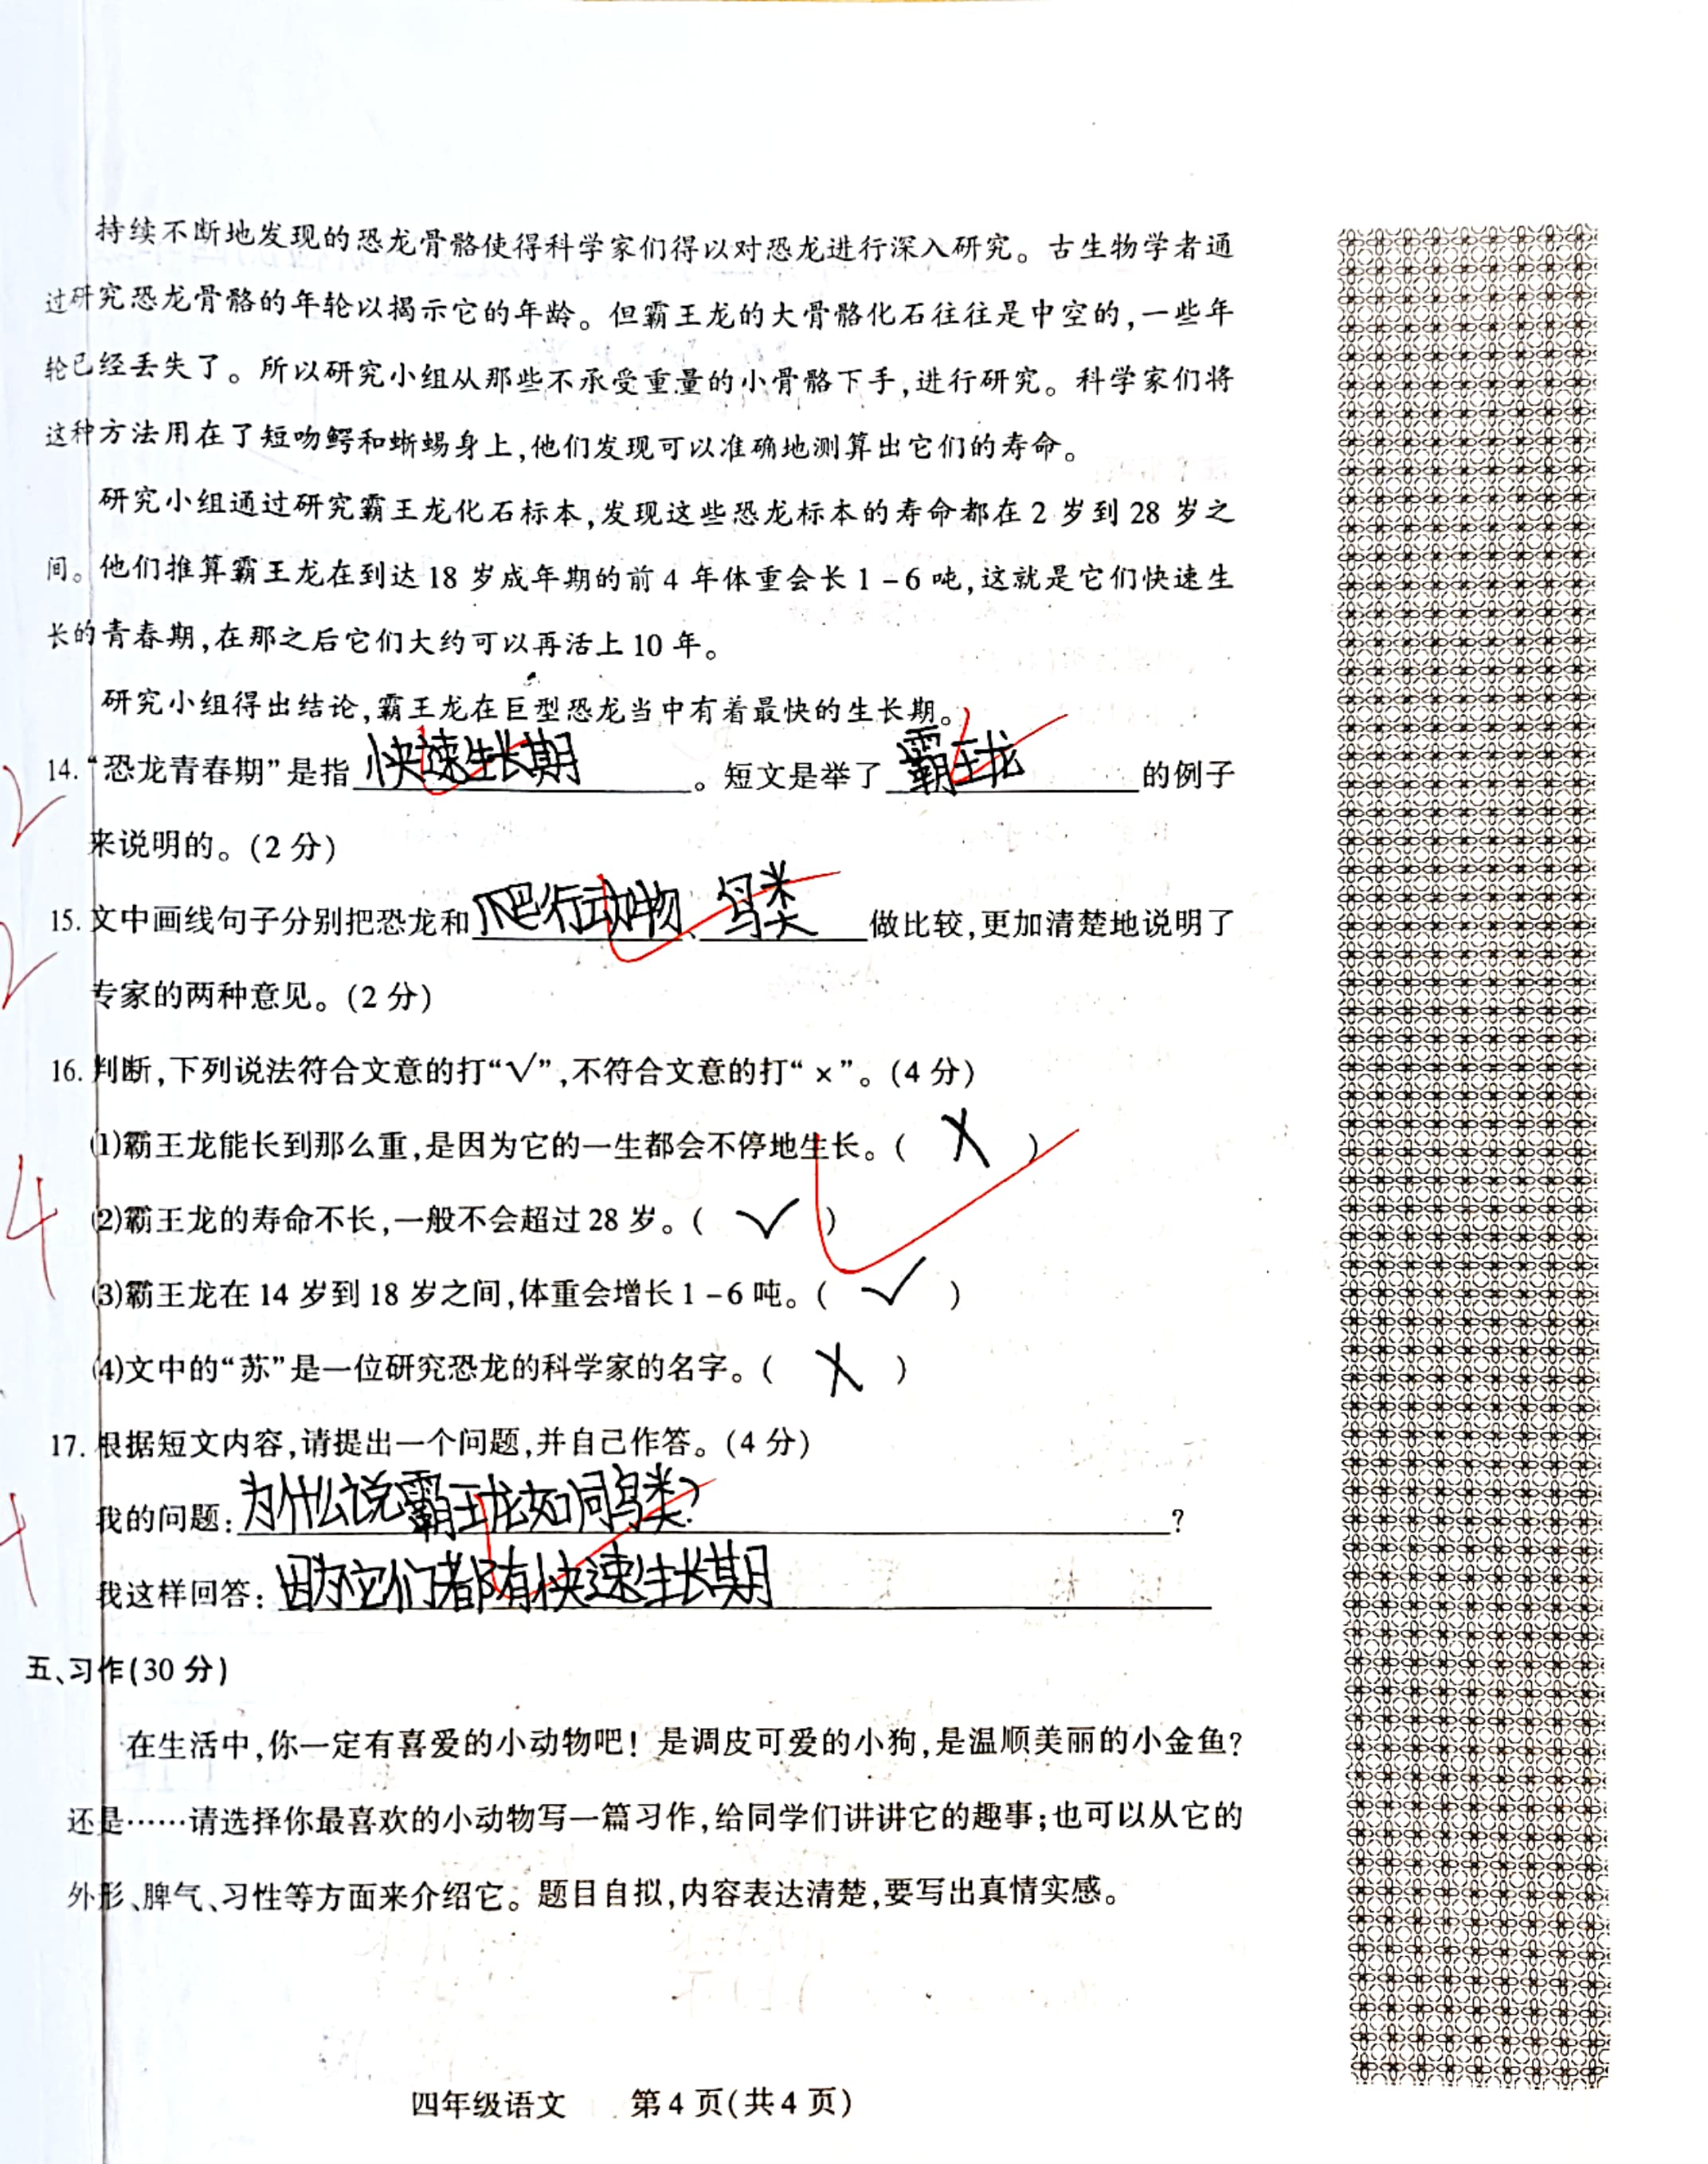 持续不断地发现的恐龙骨骼使得科学家们得以对恐龙进行深入研究。古生物学者通
过研究恐龙骨骼的年轮以揭示它的年龄。但霸王龙的大骨骼化石往往是中空的,一些年
轮已经丢失了。所以研究小组从那些不承受重量的小骨骼下手,进行研究。科学家们将
这种方法用在了短吻鳄和蜥蜴身上,他们发现可以准确地测算出它们的寿命。
研究小组通过研究霸王龙化石标本,发现这些恐龙标本的寿命都在2岁到28岁之
间。他们推算霸王龙在到达18岁成年期的前4年体重会长1-6吨,这就是它们快速生
长的青春期,在那之后它们大约可以再活上10年。
研究小组得出结论,霸王龙在巨型恐龙当中有着最快的生长期。
2 14.“恐龙青春期”是指快速生长期。短文是举了霸王龙的例子
来说明的。(2分)
2 15.文中画线句子分别把恐龙和爬行动物、鸟类做比较,更加清楚地说明了
专家的两种意见。(2分)
16.判断,下列说法符合文意的打“√”,不符合文意的打“×”。(4分)
(1)霸王龙能长到那么重,是因为它的一生都会不停地生长。( X )
4 (2)霸王龙的寿命不长,一般不会超过28岁。( √ )
(3)霸王龙在14岁到18岁之间,体重会增长1-6吨。( √ )
(4)文中的“苏”是一位研究恐龙的科学家的名字。( X )
17.根据短文内容,请提出一个问题,并自己作答。(4分)
4 我的问题:为什么说霸王龙如同鸟类??
我这样回答:因为它们都有快速生长期
五、习作(30分)
在生活中,你一定有喜爱的小动物吧!是调皮可爱的小狗,是温顺美丽的小金鱼?
还是……请选择你最喜欢的小动物写一篇习作,给同学们讲讲它的趣事;也可以从它的
外形、脾气、习性等方面来介绍它。题目自拟,内容表达清楚,要写出真情实感。
四年级语文 第4页(共4页)